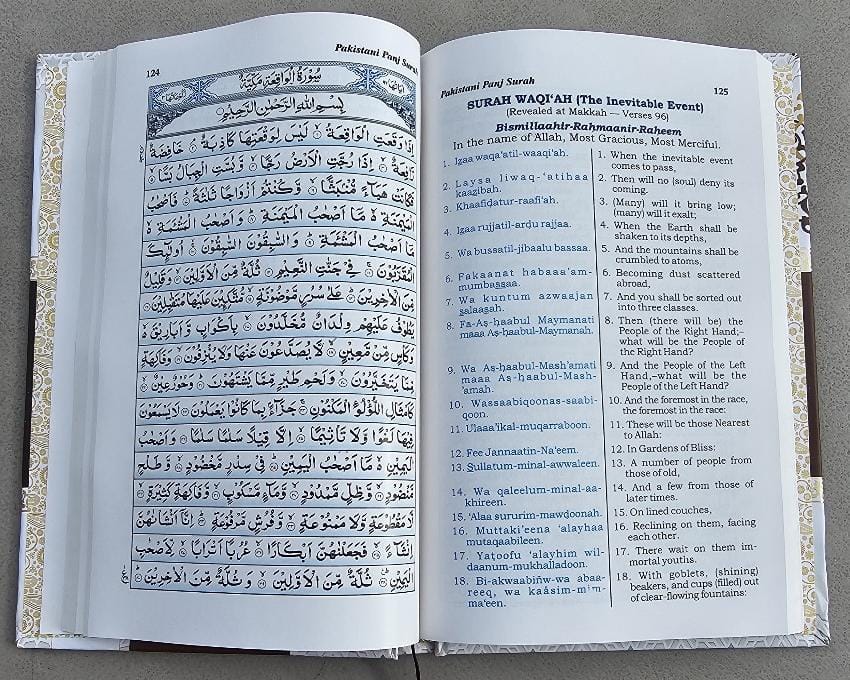 124
Pakistani Panj Surah
سُوْرَةُ الْوَاقِعَةِ مَكِّيَّةٌ
بِسْمِ اللّٰهِ الرَّحْمٰنِ الرَّحِيْمِ
اِذَا وَقَعَتِ الْوَاقِعَةُ لَيْسَ لِوَقْعَتِهَا كَاذِبَةٌ خَافِضَةٌ
رَّافِعَةٌ اِذَا رُجَّتِ الْاَرْضُ رَجًّا وَّبُسَّتِ الْجِبَالُ بَسًّا
فَكَانَتْ هَبَآءً مُّنْۢبَثًّا وَّكُنْتُمْ اَزْوَاجًا ثَلٰثَةً فَاَصْحٰبُ
الْمَيْمَنَةِ مَآ اَصْحٰبُ الْمَيْمَنَةِ وَاَصْحٰبُ الْمَشْئَمَةِ
مَآ اَصْحٰبُ الْمَشْئَمَةِ وَالسّٰبِقُوْنَ السّٰبِقُوْنَ اُولٰٓئِكَ
الْمُقَرَّبُوْنَ فِيْ جَنّٰتِ النَّعِيْمِ ثُلَّةٌ مِّنَ الْاَوَّلِيْنَ وَقَلِيْلٌ
مِّنَ الْاٰخِرِيْنَ عَلٰى سُرُرٍ مَّوْضُوْنَةٍ مُّتَّكِئِيْنَ عَلَيْهَا مُتَقٰبِلِيْنَ
يَطُوْفُ عَلَيْهِمْ وِلْدَانٌ مُّخَلَّدُوْنَ بِاَكْوَابٍ وَّاَبَارِيْقَ
وَكَاْسٍ مِّنْ مَّعِيْنٍ لَّا يُصَدَّعُوْنَ عَنْهَا وَلَا يُنْزِفُوْنَ وَفَاكِهَةٍ
مِّمَّا يَتَخَيَّرُوْنَ وَلَحْمِ طَيْرٍ مِّمَّا يَشْتَهُوْنَ وَحُوْرٌ عِيْنٌ
كَاَمْثَالِ اللُّؤْلُؤِ الْمَكْنُوْنِ جَزَآءًۢ بِمَا كَانُوْا يَعْمَلُوْنَ لَا يَسْمَعُوْنَ
فِيْهَا لَغْوًا وَّلَا تَاْثِيْمًا اِلَّا قِيْلًا سَلٰمًا سَلٰمًا وَاَصْحٰبُ
الْيَمِيْنِ مَآ اَصْحٰبُ الْيَمِيْنِ فِيْ سِدْرٍ مَّخْضُوْدٍ وَّطَلْحٍ
مَّنْضُوْدٍ وَّظِلٍّ مَّمْدُوْدٍ وَّمَآءٍ مَّسْكُوْبٍ وَّفَاكِهَةٍ كَثِيْرَةٍ
لَّا مَقْطُوْعَةٍ وَّلَا مَمْنُوْعَةٍ وَّفُرُشٍ مَّرْفُوْعَةٍ اِنَّآ اَنْشَاْنٰهُنَّ
اِنْشَآءً فَجَعَلْنٰهُنَّ اَبْكَارًا عُرُبًا اَتْرَابًا لِّاَصْحٰبِ
الْيَمِيْنِ ثُلَّةٌ مِّنَ الْاَوَّلِيْنَ وَثُلَّةٌ مِّنَ الْاٰخِرِيْنَ
Pakistani Panj Surah
125
SURAH WAQI‘AH (The Inevitable Event)
(Revealed at Makkah — Verses 96)
Bismillaahir-Raḥmaanir-Raheem
In the name of Allah, Most Gracious, Most Merciful.
1. Izaa waqa’atil-waaqi’ah.
2. Laysa liwaq-‘atihaa
kaazibah.
3. Khaafiḍatur-raafi’ah.
4. Izaa rujjatil-arḍu rajjaa.
5. Wa bussatil-jibaalu bassaa.
6. Fakaanat habaaa’am-
mumbassaa.
7. Wa kuntum azwaajan
salaasah.
8. Fa-Aṣ-ḥaabul Maymanati
maaa Aṣ-ḥaabul-Maymanah.
9. Wa Aṣ-ḥaabul-Mash’amati
maaa Aṣ-ḥaabul-Mash-
’amah.
10. Wassaabiqoonas-saabi-
qoon.
11. Ulaaa’ikal-muqarraboon.
12. Fee Jannaatin-Na’eem.
13. Sullatum-minal-awwaleen.
14. Wa qaleelum-minal-aa-
khireen.
15. ‘Alaa sururim-mawḍoonah.
16. Muttaki’eena ‘alayhaa
mutaqaabileen.
17. Yaṭoofu ‘alayhim wil-
daanum-mukhalladoon.
18. Bi-akwaabiñw-wa abaa-
reeq, wa kaásim-mim-
ma’een.
1. When the inevitable event
comes to pass,
2. Then will no (soul) deny its
coming.
3. (Many) will it bring low;
(many) will it exalt;
4. When the Earth shall be
shaken to its depths,
5. And the mountains shall be
crumbled to atoms,
6. Becoming dust scattered
abroad,
7. And you shall be sorted out
into three classes.
8. Then (there will be) the
People of the Right Hand;–
what will be the People of
the Right Hand?
9. And the People of the Left
Hand,–what will be the
People of the Left Hand?
10. And the foremost in the race,
the foremost in the race:
11. These will be those Nearest
to Allah:
12. In Gardens of Bliss:
13. A number of people from
those of old,
14. And a few from those of
later times.
15. On lined couches,
16. Reclining on them, facing
each other.
17. There wait on them im-
mortal youths.
18. With goblets, (shining)
beakers, and cups (filled) out
of clear-flowing fountains: